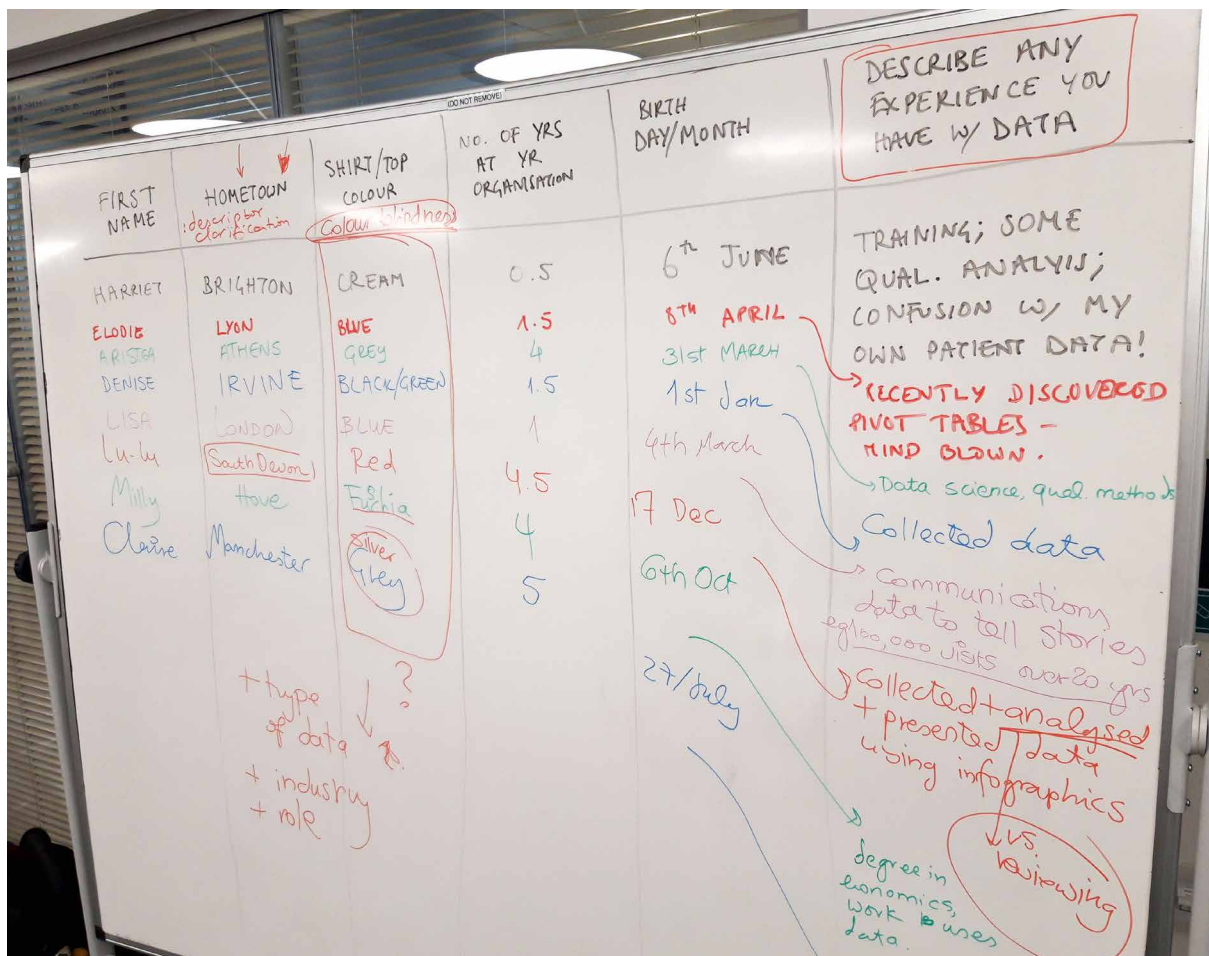 (DO NOT REMOVE)
FIRST NAME
HOMETOWN
: descriptor clarification
SHIRT/TOP COLOUR
Colour blindness
NO. OF YRS AT YR ORGANISATION
BIRTH DAY/MONTH
DESCRIBE ANY
EXPERIENCE YOU
HAVE W/ DATA
HARRIET BRIGHTON CREAM 0.5 6th JUNE
TRAINING; SOME
QUAL. ANALYIS;
CONFUSION W/ MY
OWN PATIENT DATA!
ELODIE LYON BLUE 1.5 8TH APRIL
RECENTLY DISCOVERED
PIVOT TABLES -
MIND BLOWN.
ARISTEA ATHENS GREY 4 31st MARCH
Data science, qual. methods
DENISE IRVINE BLACK/GREEN 1.5 1st Jan
Collected data
LISA LONDON BLUE 1 4th March
Communications
data to tell stories
eg 100,000 visits over 20 yrs
Lu-lu South Devon Red 4.5 17 Dec
Collected + analysed
+ presented data
using infographics
vs.
reviewing
Milly Hove Fuchia 4 6th Oct
degree in
economics,
work uses
data.
Claire Manchester Silver Grey 5 27/July
+ type
of data
+ industry
+ role
?